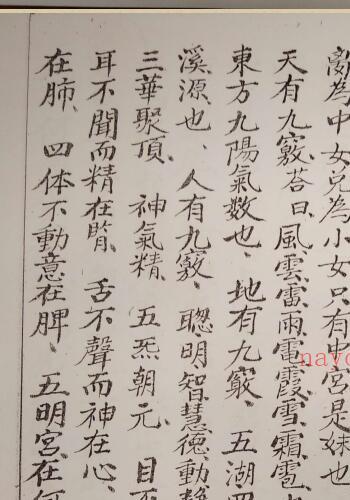 為中女兌為小女只有中宮是妹也
天有九竅答曰風雲雷雨電霞雪霜雹
東方九陽氣数也、地有九竅、五湖四
溪源也、人有九竅、聰明智慧德動靜
三華聚頂、神氣精、五炁朝元、目不
耳不聞而精在腎、舌不聲而神在心、
在肺、四体不動意在脾、五明宮在何